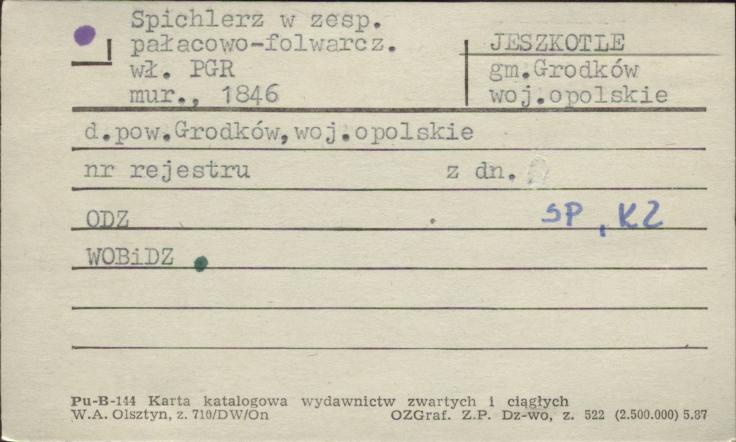 Spichlerz w zesp.
pałacowo-folwarcz.
wł. PGR
mur., 1846
JESZKOTLE
gm.Grodków
woj.opolskie
d.pow.Grodków,woj.opolskie
nr rejestru z dn.
ODZ SP, KZ
WOBiDZ
Pu-B-144 Karta katalogowa wydawnictw zwartych i ciągłych
W.A. Olsztyn, z. 710/DW/On OZGraf. Z.P. Dz-wo, z. 522 (2.500.000) 5.87